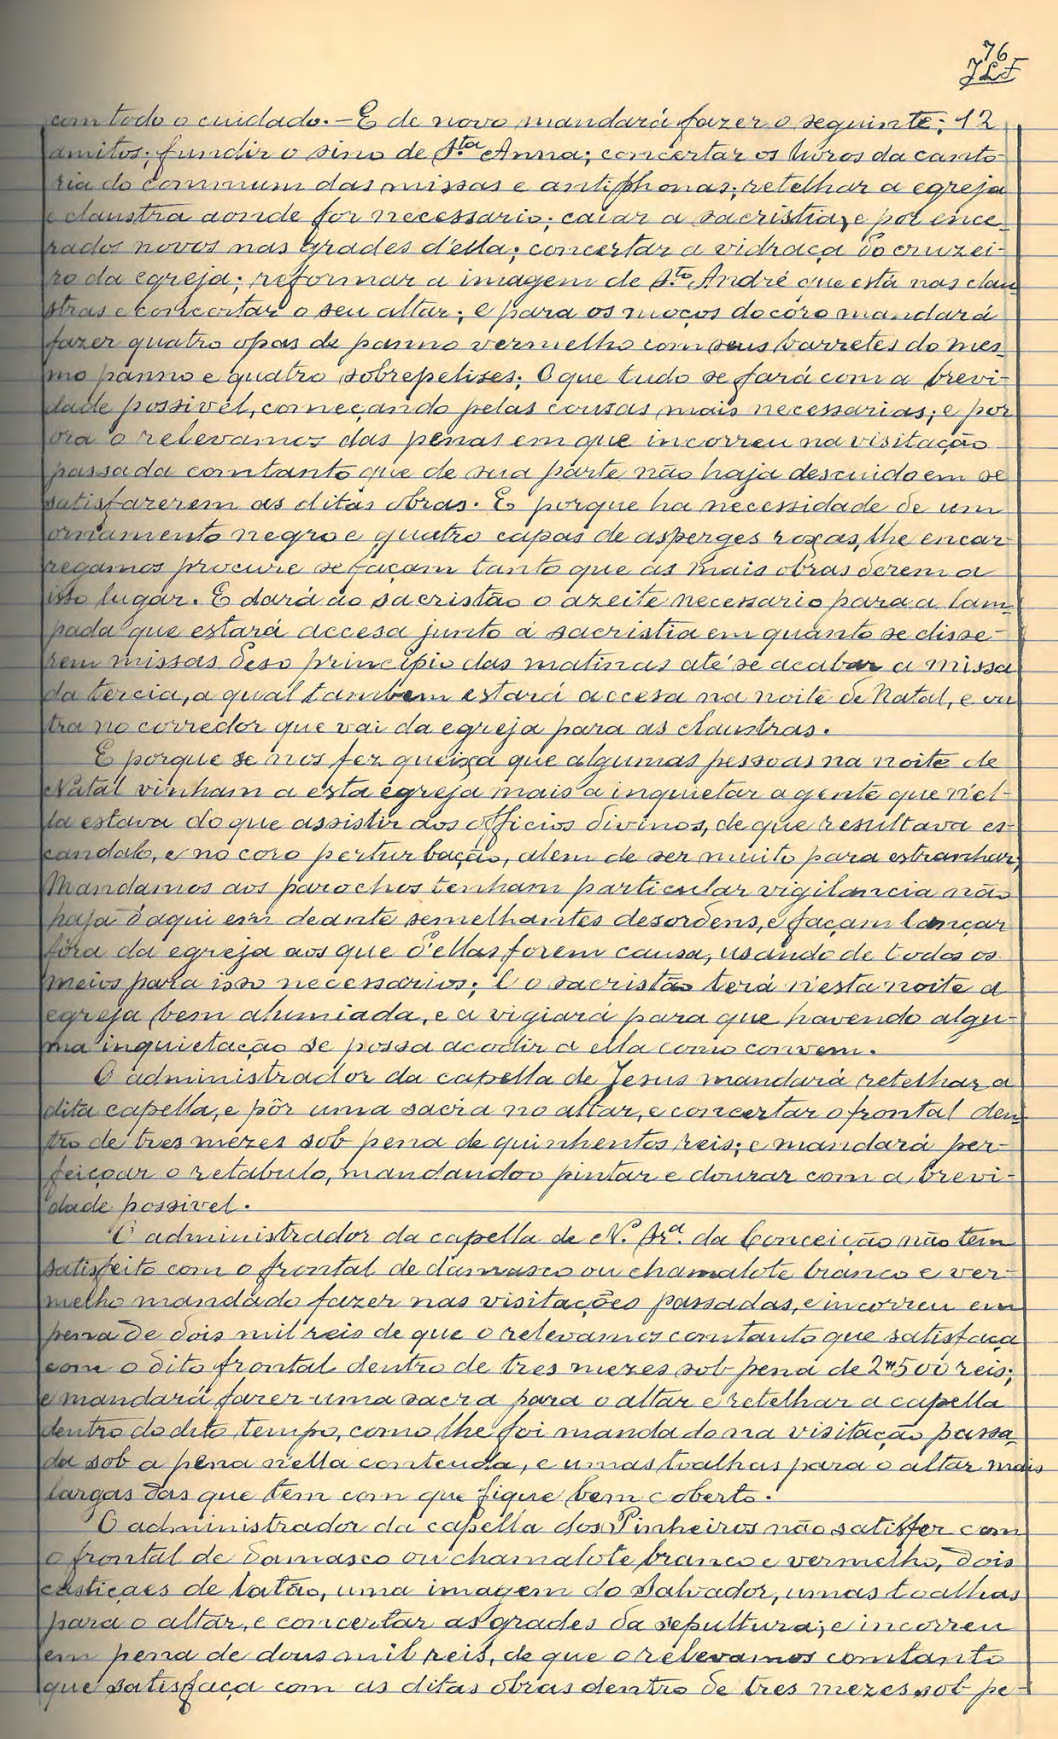 76
JLF
com todo o cuidado. — E de novo mandará fazer o seguinte: 12
amitos; fundir o sino de Sta Anna; concertar os livros da canto-
ria do commum das missas e antiphonas; retelhar a egreja
e claustra aonde for necessario; caiar a sacristia, e pôr ence-
rados novos nas grades d'ella; concertar a vidraça do cruzei-
ro da egreja; reformar a imagem de Sto André que está nas claus
stras e concertar o seu altar; e para os moços do côro mandará
fazer quatro opas de panno vermelho com seus barretes do mes-
mo panno e quatro sobrepelises; O que tudo se fará com a brevi-
dade possivel, começando pelas cousas mais necessarias; e por
ora o relevamos das penas em que incorreu na visitação
passada comtanto que de sua parte não haja descuido em se
satisfazerem as ditas obras. E porque ha necessidade de um
ornamento negro e quatro capas de asperges roxas, lhe encar-
regamos procure se façam tanto que as mais obras derem a
isso lugar. E dará ao sacristão o azeite necessario para a lam-
pada que estará accesa junto á sacristia em quanto se disse-
rem missas deso principio das matinas até se acabar a missa
da tercia, a qual tambem estará accesa na noite de Natal, e ou
tra no corredor que vai da egreja para as claustras.
E porque se nos fez queixa que algumas pessoas na noite de
Natal vinham a esta egreja mais a inquietar a gente que n'el-
la estava do que assistir aos officios divinos, de que resultava es-
candalo, e no coro perturbação, alem de ser muito para estranhar;
Mandamos aos parochos tenham particular vigilancia não
haja d'aqui em deante semelhantes desordens, e façam lançar
fóra da egreja aos que d'ellas forem causa, usando de todos os
meios para isso necessarios; E o sacristão terá n'esta noite a
egreja bem alumiada, e a vigiará para que havendo algu-
ma inquietação se possa acodir a ella como convem.
O administrador da capella de Jesus mandará retelhar a
dita capella, e pôr uma sacra no altar, e concertar o frontal den-
tro de tres mezes sob pena de quinhentos reis; e mandará per-
feiçoar o retabulo, mandando-o pintar e dourar com a brevi-
dade possivel.
O administrador da capella de N. Sra. da Conceição não tem
satisfeito com o frontal de damasco ou chamalote branco e ver-
melho mandado fazer nas visitações passadas, e incorreu em
pena de dois mil reis de que o relevamos comtanto que satisfaça
com o dito frontal dentro de tres mezes sob pena de 2$500 reis;
e mandará fazer uma sacra para o altar e retelhar a capella
dentro do dito tempo, como lhe foi mandado na visitação passa-
da sob a pena n'ella conteuda, e umas toalhas para o altar mais
largas das que tem com que fique bem coberto.
O administrador da capella dos Pinheiros não satisfez com
o frontal de damasco ou chamalote branco e vermelho, dois
castiçaes de latão, uma imagem do Salvador, umas toalhas
para o altar, e concertar as grades da sepultura; e incorreu
em pena de dous mil reis, de que o relevamos comtanto
que satisfaça com as ditas obras dentro de tres mezes sob pe-